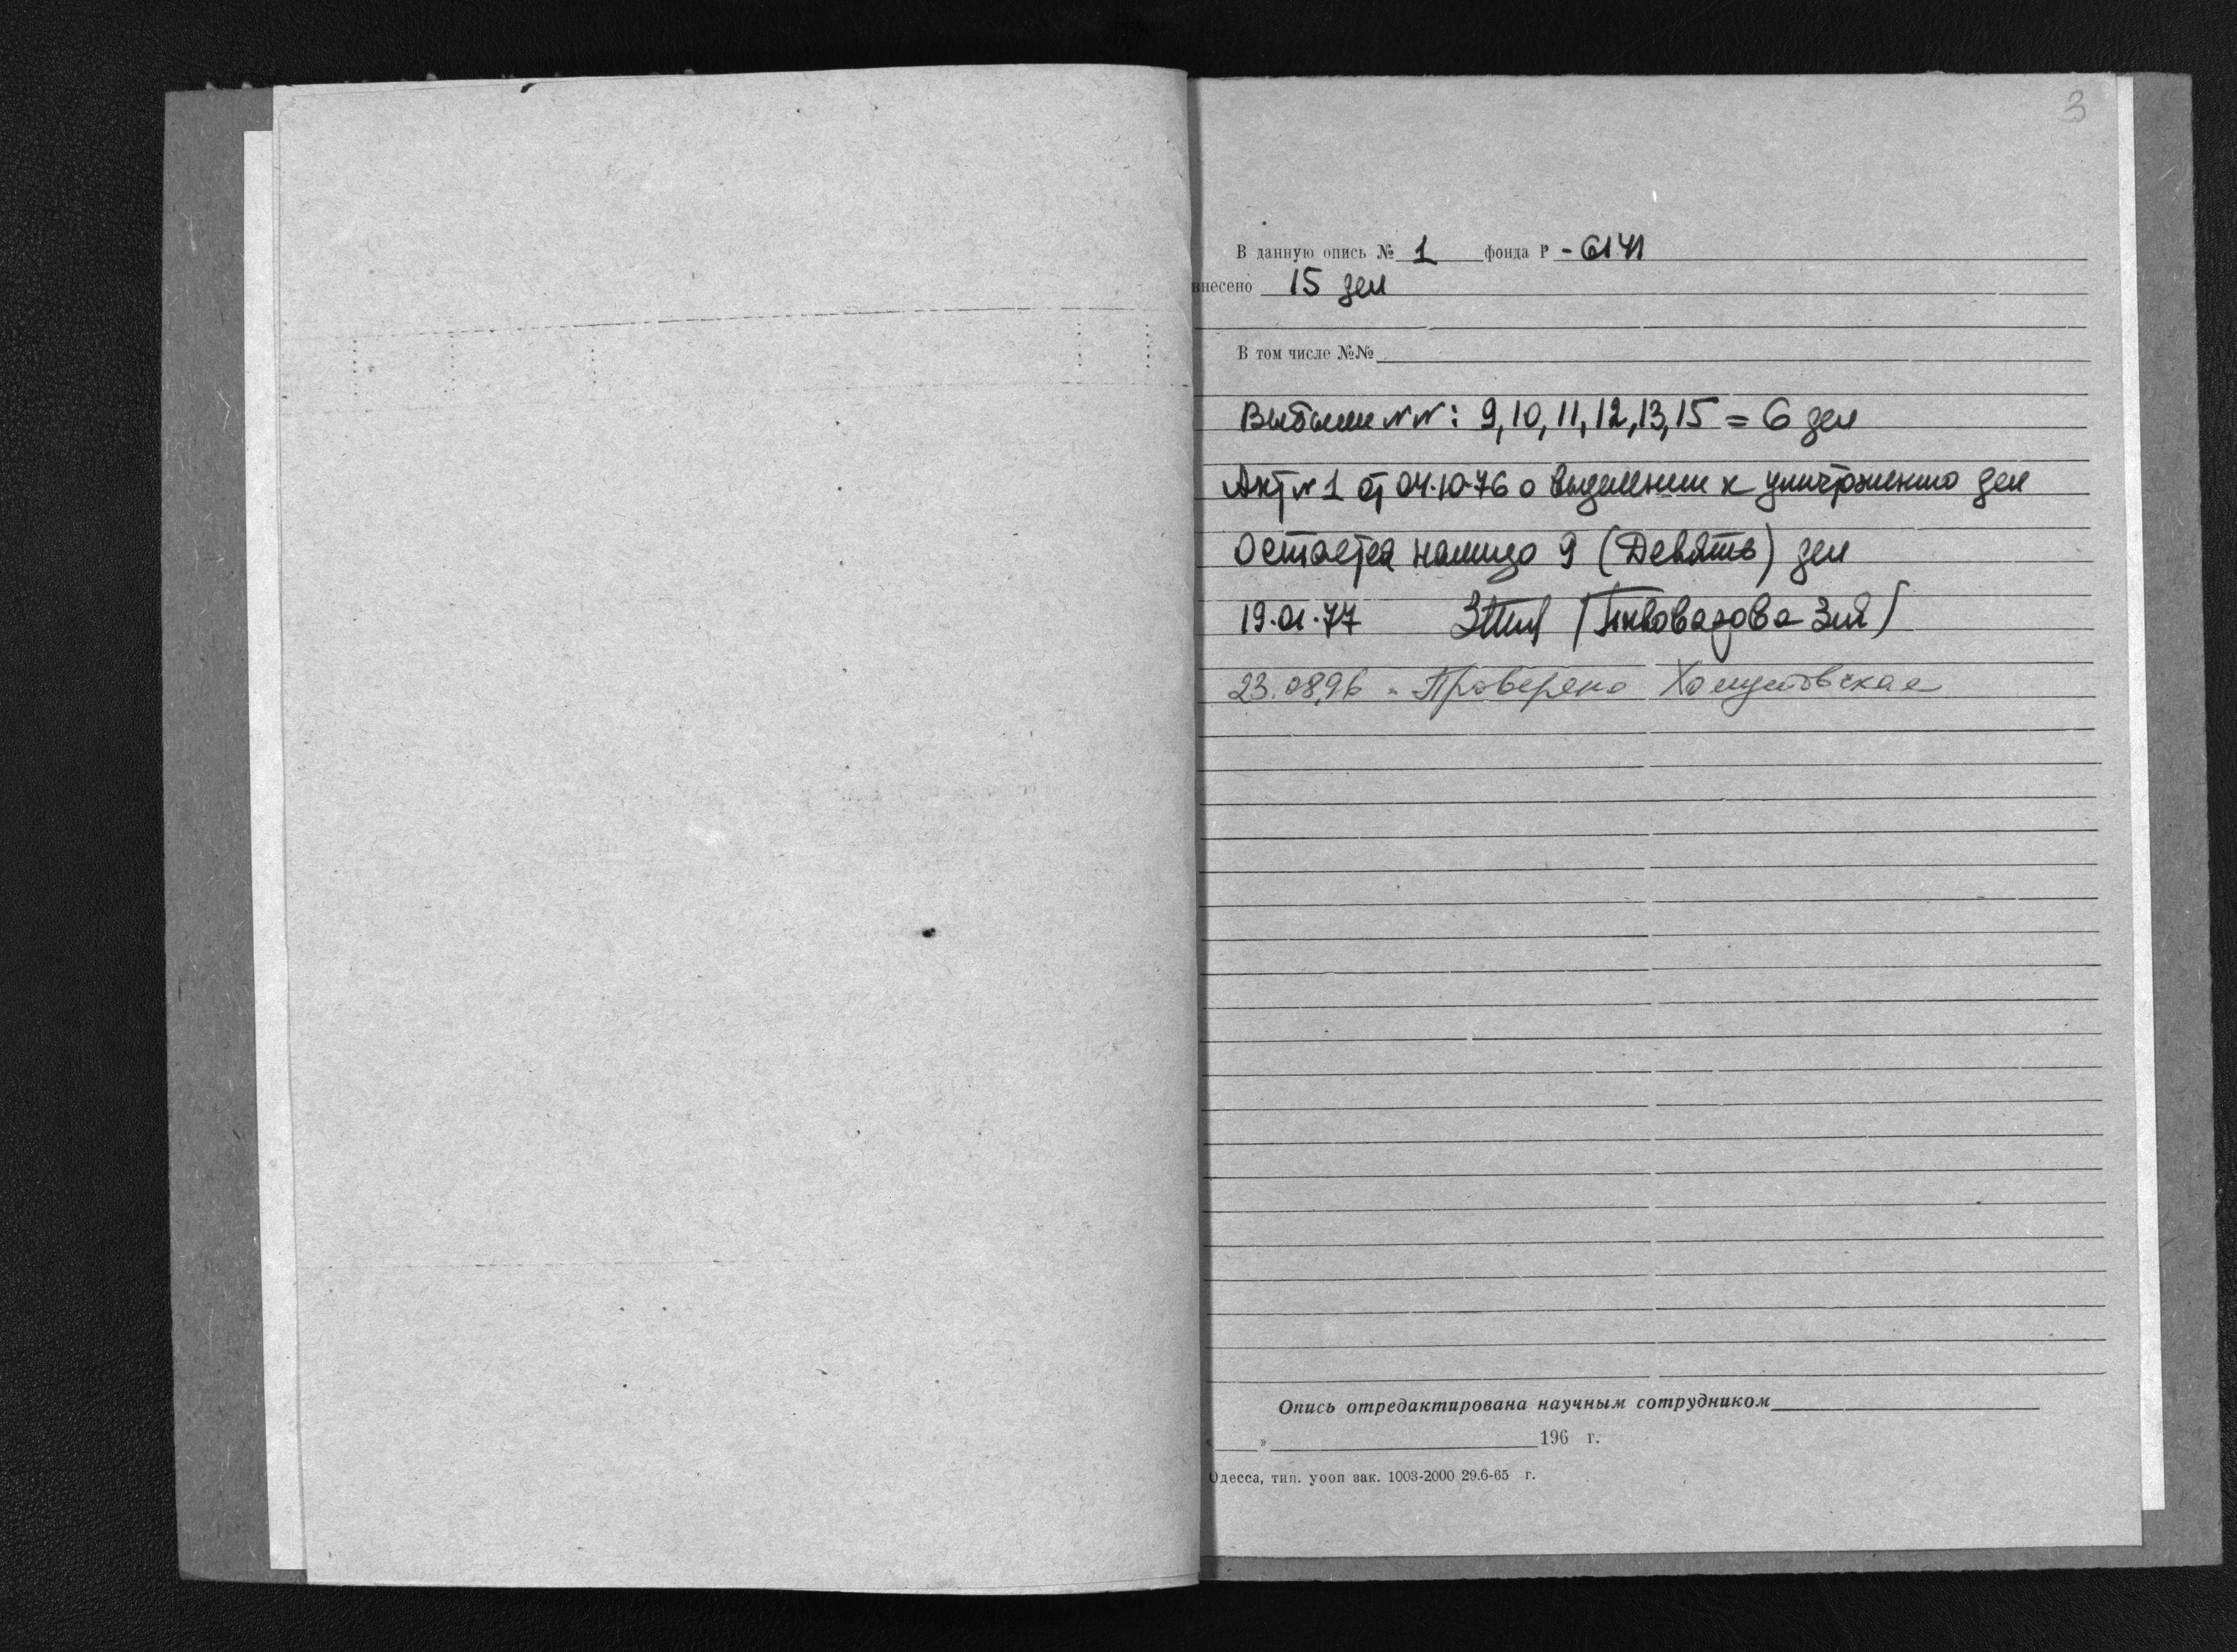 3
В данную опись № 1 фонда Р - 6141
внесено 15 дел
В том числе №№
Выбыли №№: 9, 10, 11, 12, 13, 15 = 6 дел
Акт № 1 от 04.10.76 о выделении к уничтожению дел
Остается налицо 9 (Девять) дел
19.01.77
23.08.96 Проверено
Опись отредактирована научным сотрудником
« » 196 г.
Одесса, тип. уооп зак. 1003-2000 29.6-65 г.